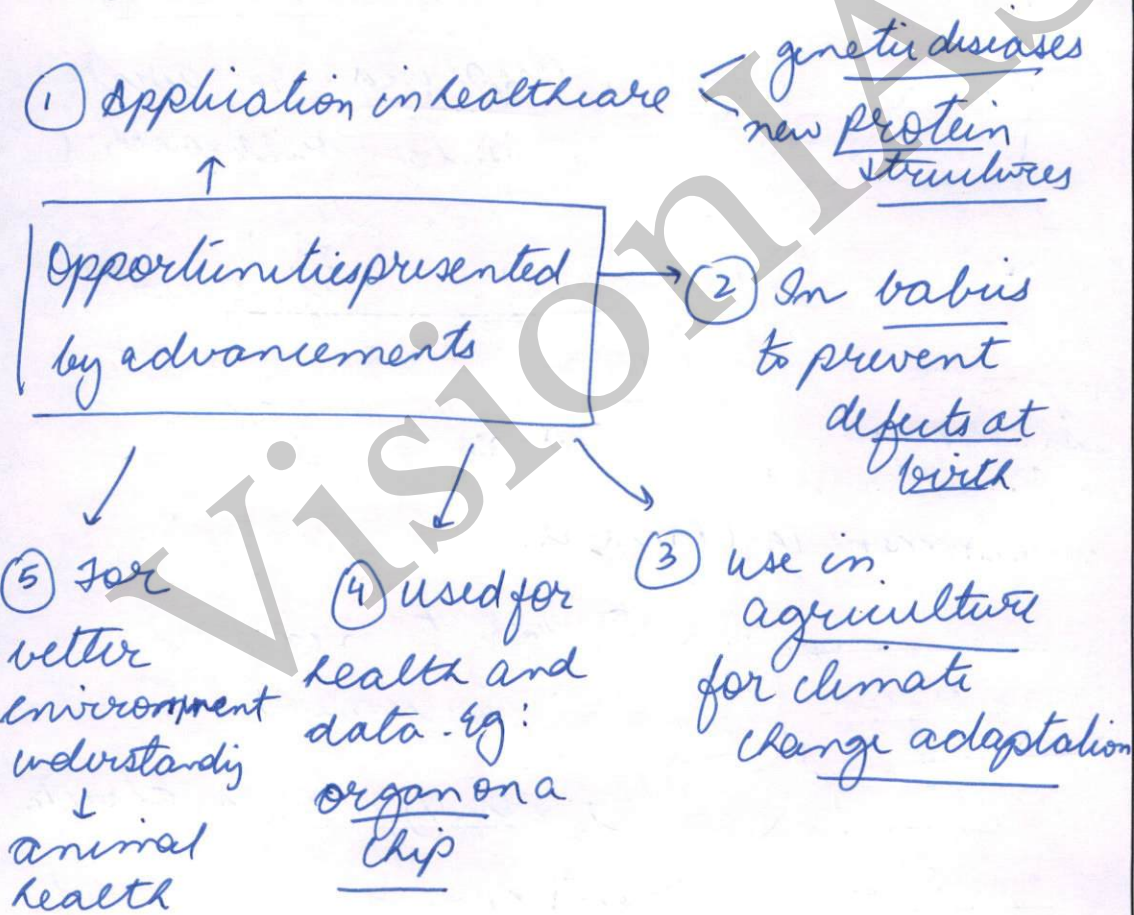 ① Application in healthcare
genetic diseases
new protein
structures
Opportunities presented
by advancements
② In babies
to prevent
defects at
birth
③ use in
agriculture
for climate
change adaptation
④ used for
health and
data. Eg:
organ on a
chip
⑤ For
better
environment
understanding
animal
health
VisionIAS